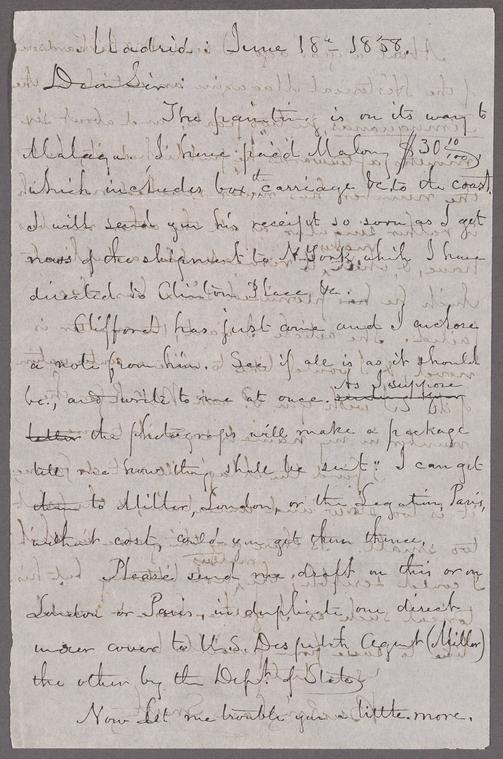 Madrid: June 18th 1858.
Dear Sir:
The painting is on its way to
Malaga. I have paid Malony $30 10/100
which includes box, carriage &c to the coast.
I will send you his receipt so soon as I get
news of the shipment to N. York, while I have
directed to Clinton Place &c.
Clifford has just come and I enclose
a note from him. See if all is as it should
be, and write to me at once. As I suppose
the photographs will make a package
tell me how they shall be sent. I can get
them to Miller, London, or the Legation, Paris,
without cost, could you get them thence.
Please send me draft on this or on
London or Paris, in duplicate, one direct
under cover to U.S. Despatch Agent (Miller)
the other by the Dept. of State.
Now let me trouble you a little more.